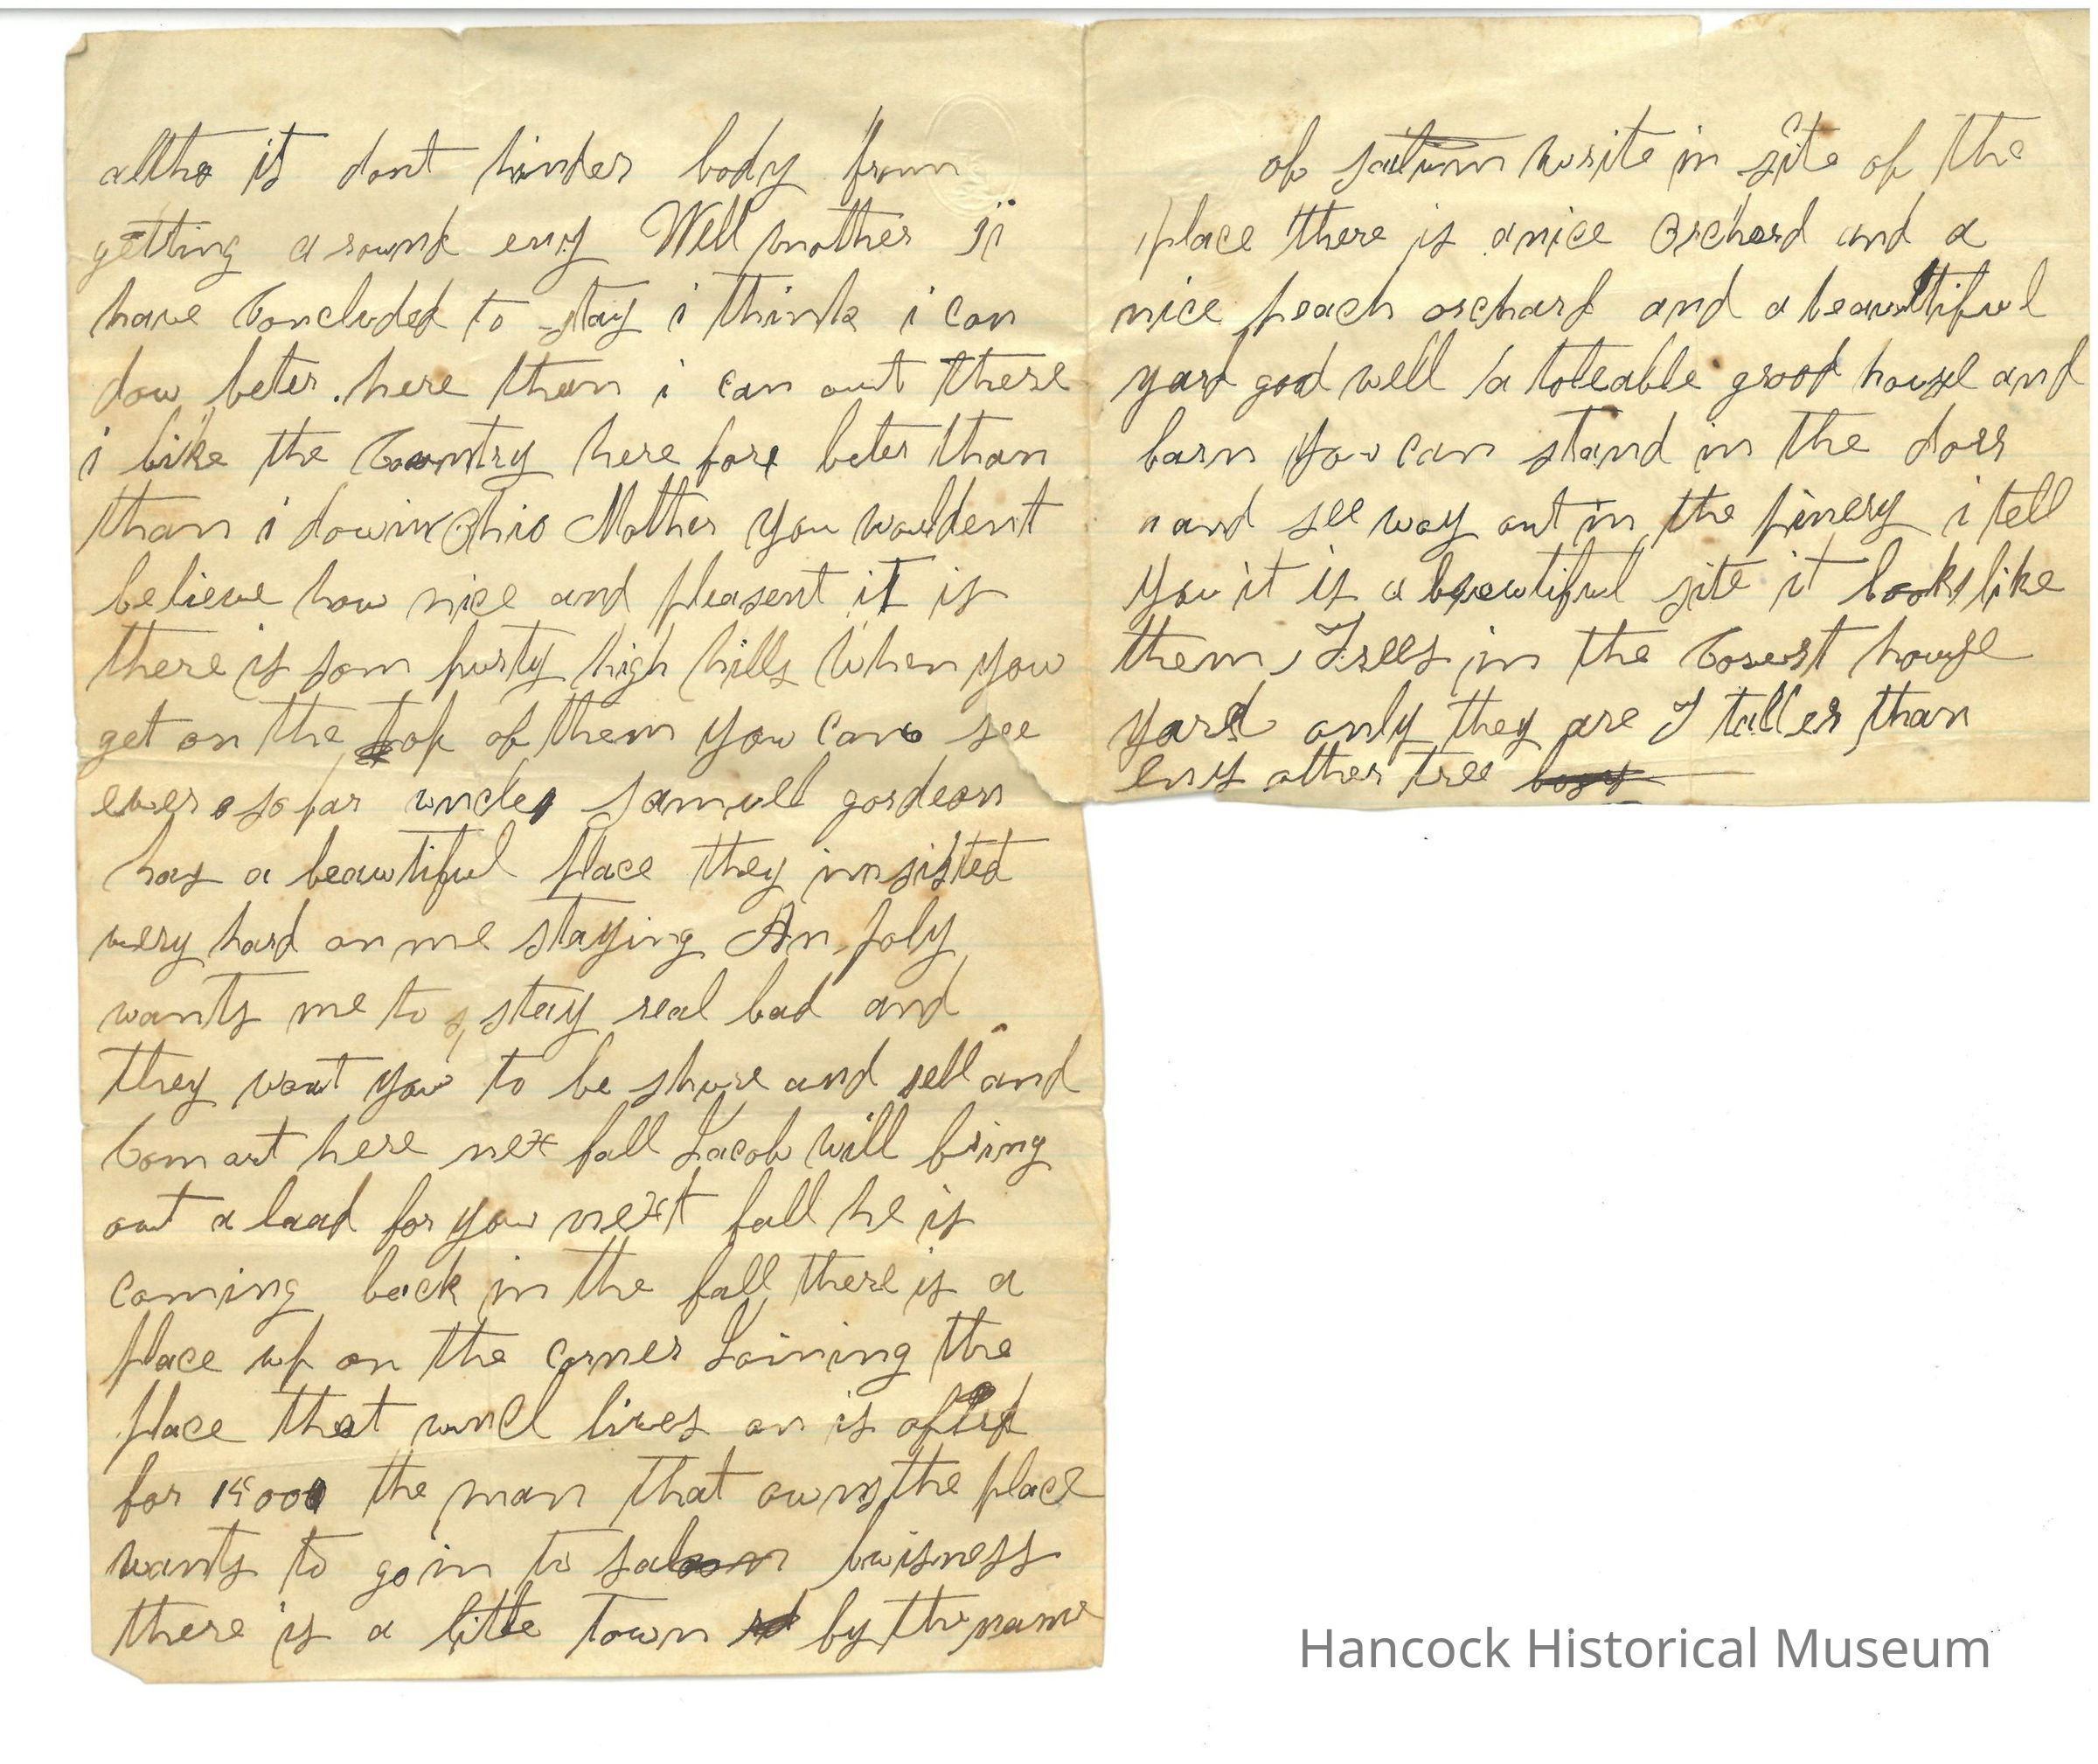 altho it dont hinder body from
getting a round eny Well mother Ii
have Concluded to stay i think i can
dow beter here then i can out there
i like the Country here fore beter than
than i dow in Ohio Mother you wouldent
believe how nice and pleasent it is
there is som purty high hills When you
get on the top of them you can see
ever so far uncle Samuell gordeon
has a beautiful place they innsisted
very hard on me staying An poly
wants me to stay real bad and
they want you to be shure and sell and
Com out here nex fall Jacob will bring
out a load for you next fall he is
coming back in the fall there is a
place up on the corner Joining the
place that uncl lives on is oferd
for the man that owns the place
wants to go in to saloon buisness
there is a little Town by the name
of write in site of the
place there is a nice Orchord and a
nice peach orchard and a beautiful
yard god well a toleable good house and
barn You can stand in the dorr
and see way out in the pinery i tell
You it is a beautiful site it looks like
them Trees in the Corest house
yard only they are T taller than
eny other tree
Hancock Historical Museum